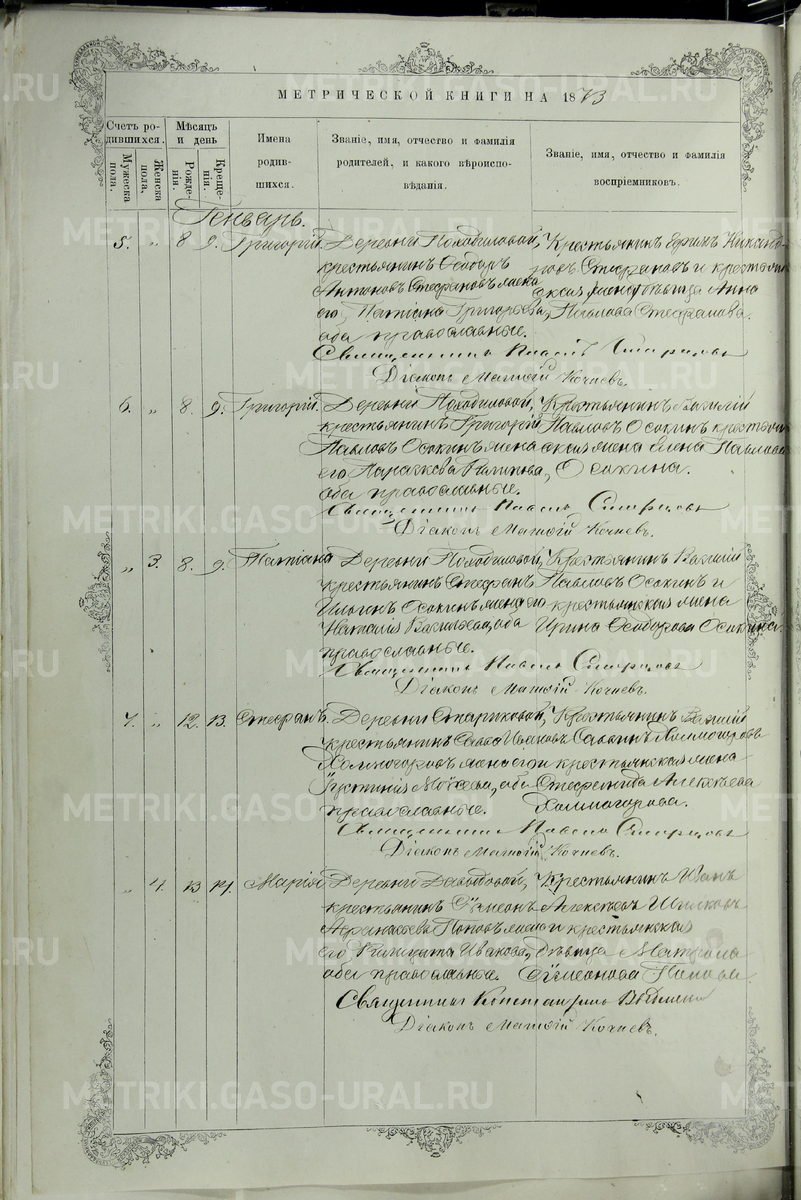 МЕТРИЧЕСКОЙ КНИГИ НА 1873
Счетъ ро-
дившихся.
Мужеска пола.
Женска пола.
Мѣсяцъ
и день
Рожде-
нія.
Креще-
нія.
Имена
родив-
шихся.
Званіе, имя, отчество и фамилія
родителей, и какого вѣроиспо-
вѣданія.
Званіе, имя, отчество и фамилія
воспріемниковъ.
Генварь.
5. „ 8 9. Григорій. Деревни
крестьянинъ
Антоновъ Стефановъ жена
его Татіана Григорьева,
оба православные.
Крестьянинъ Ефимъ Никанд-
ровъ Стефановъ и крестьян
ская дѣвица Анна
Павлова Стефанова.
Священникъ Павелъ
Діаконъ Матѳій Кочневъ.
6. „ 8. 9. Григорій. Деревни
крестьянинъ Григорій
Павловъ Осокинъ жена
его Параскева Филипова,
оба православные.
Крестьянинъ Василій
Павловъ Осокин крестьян
ская жена Елена Павлова
Осокина.
Священникъ Павелъ
Діаконъ Матѳій Кочневъ.
„ 3. 8. 9. Татіана Деревни
крестьянинъ Стефанъ
Ильинъ Осокинъ жена его
Наталія Васильева, оба
православные.
Крестьянинъ Василій
Павловъ Осокинъ и
крестьянская жена
Ирина Осокина.
Священникъ Павелъ
Діаконъ Матѳій Кочневъ.
7. „ 12. 13. Стефанъ. Деревни Стариковой,
крестьянинъ Савва Ивановъ
Холмогоровъ жена его
Іустинія Моѵсеева, оба
православные.
Крестьянинъ Василій
Саввинъ Холмогоровъ
и крестьянская жена
Стефанида Алексѣева
Холмогорова.
Священникъ Павелъ
Діаконъ Матѳій Кочневъ.
„ 4. 13 14. Марія Деревни
крестьянинъ Сѵмеонъ
Афанасьевъ Поповъ жена
его Иванова,
оба православные.
Крестьянинъ Иванъ
Алексѣевъ
и крестьянская
дѣвица Матрона
Сѵмеонова Попова.
Священникъ Константинъ
Діаконъ Матѳій Кочневъ.
METRIKI.GASO-URAL.RU